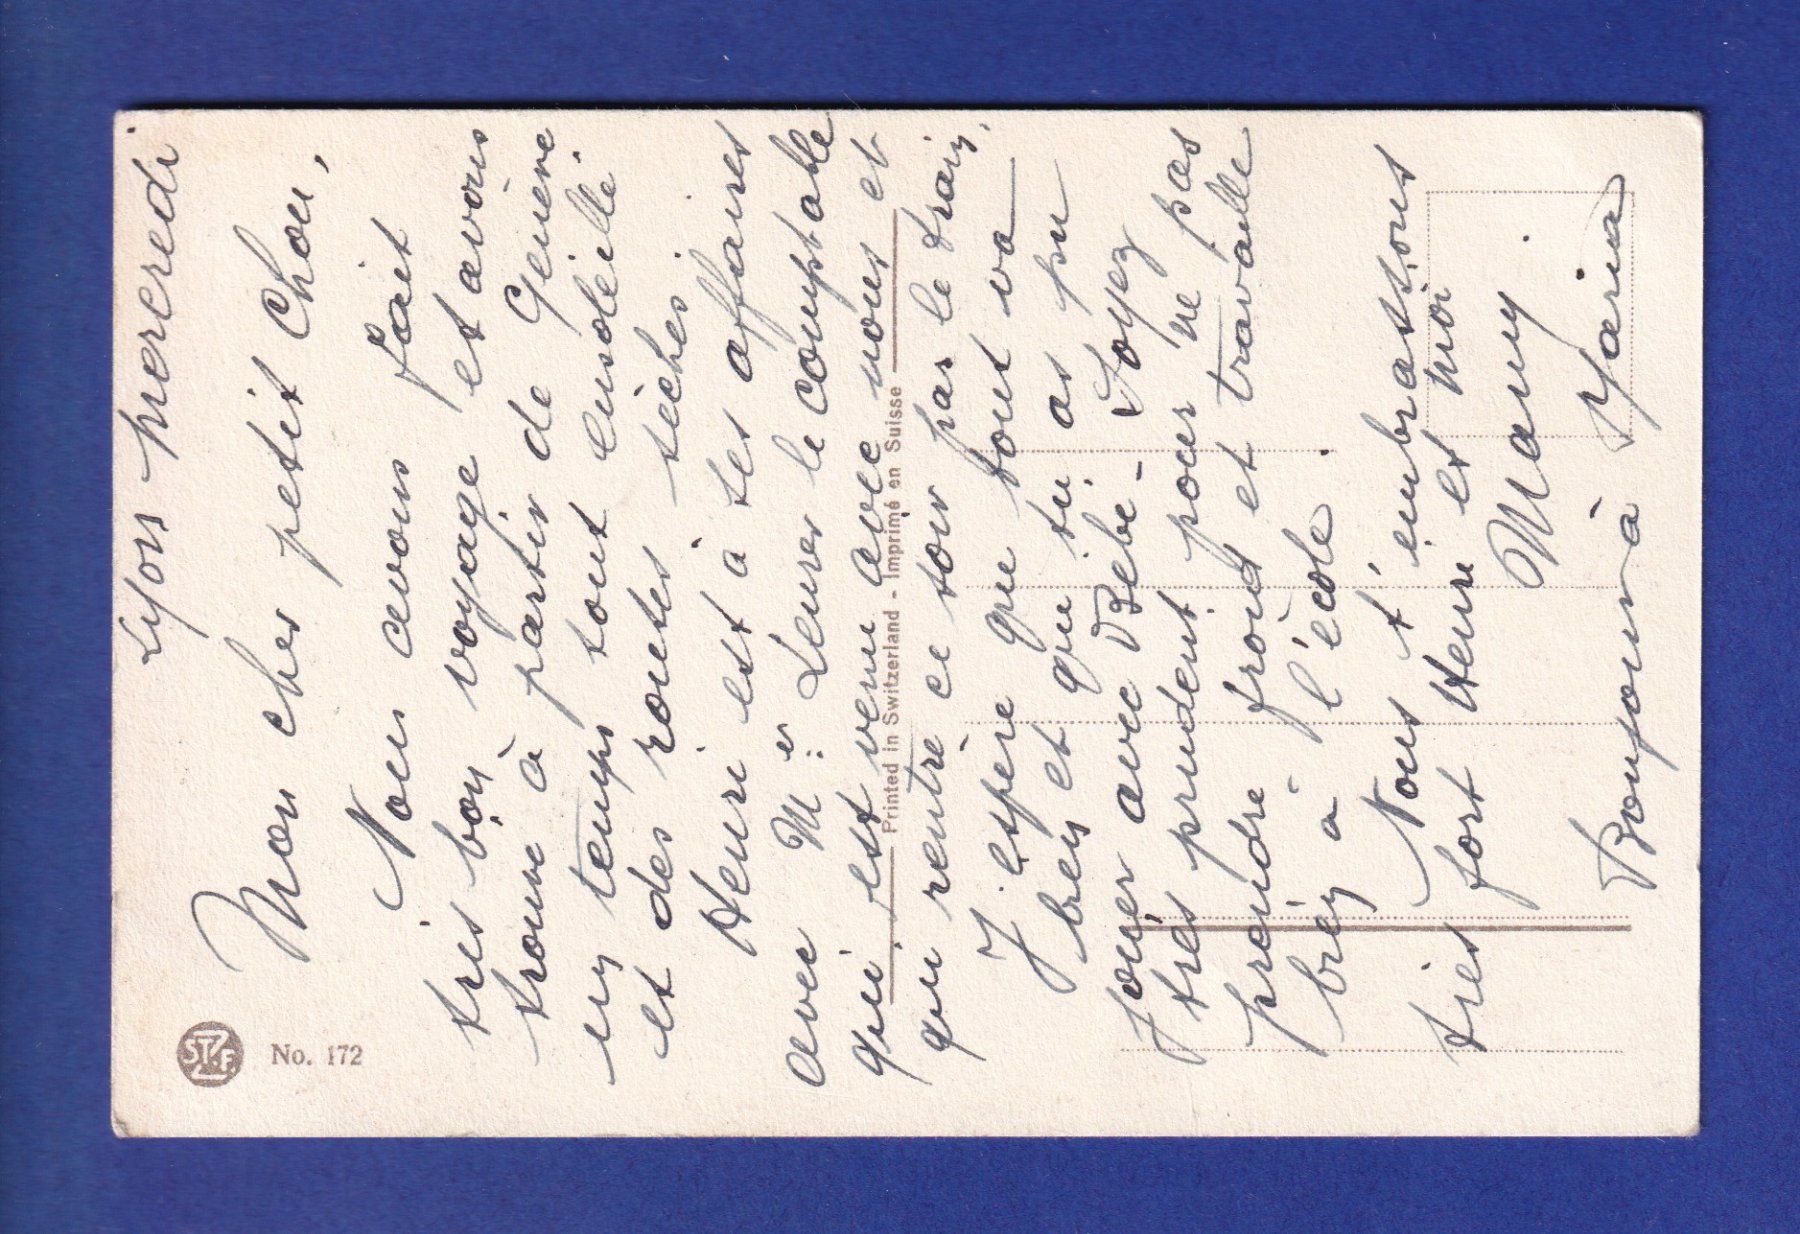 Lyon mercredi
Mon cher petit Chou,
Nous avons fait
très bon voyage et avons
trouvé à partir de Genève
un temps tout ensoleillé
et des routes sèches.
Henri est à ses affaires
avec Mr: le comptable
qui est venu avec nous et
qui rentre ce soir par le train.
J'espère que tout va
bien et que tu as pu
jouer avec Bébé - Soyez
très prudent pour ne pas
prendre froid et travaille
bien à l'école.
Nous t'embrassons
très fort Henri et moi
Mamy.
Bonjour à Maria
Printed in Switzerland - Imprimé en Suisse
STZF
No. 172